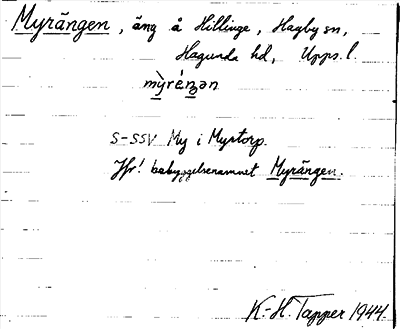 Myrängen, äng å Hillinge, Hagby sn,
Hagunda hd, Upps. l.
S-SSV My i Myrtorp.
Jfr! bebyggelsenamnet Myrängen.
K.-H. Tapper 1944.